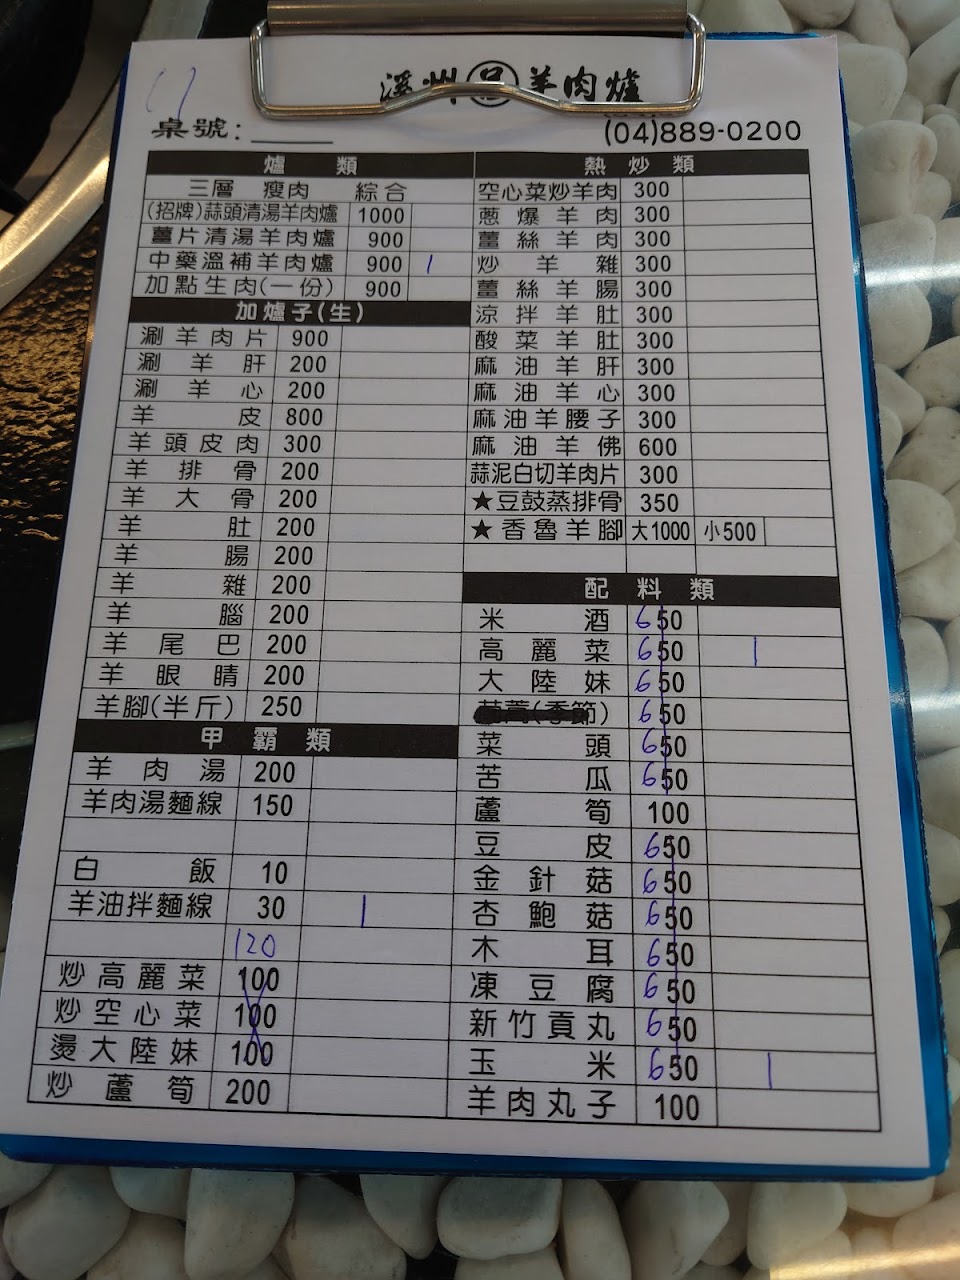 溪州呂羊肉爐
桌號:
(04)889-0200
爐類
三層 瘦肉 綜合
(招牌)蒜頭清湯羊肉爐 1000
薑片清湯羊肉爐 900
中藥溫補羊肉爐 900 1
加點生肉(一份) 900
加爐子(生)
涮羊肉片 900
涮羊肝 200
涮羊心 200
羊皮 800
羊頭皮肉 300
羊排骨 200
羊大骨 200
羊肚 200
羊腸 200
羊雜 200
羊腦 200
羊尾巴 200
羊眼睛 200
羊腳(半斤) 250
甲霸類
羊肉湯 200
羊肉湯麵線 150
白飯 10
羊油拌麵線 30 1
120
炒高麗菜 100
炒空心菜 100
燙大陸妹 100
炒蘆筍 200
熱炒類
空心菜炒羊肉 300
蔥爆羊肉 300
薑絲羊肉 300
炒羊雜 300
薑絲羊腸 300
涼拌羊肚 300
酸菜羊肚 300
麻油羊肝 300
麻油羊心 300
麻油羊腰子 300
麻油羊佛 600
蒜泥白切羊肉片 300
★豆鼓蒸排骨 350
★香魯羊腳 大1000 小500
配料類
米酒 650
高麗菜 650 1
大陸妹 650
茼蒿(季節) 650
菜頭 650
苦瓜 650
蘆筍 100
豆皮 650
金針菇 650
杏鮑菇 650
木耳 650
凍豆腐 650
新竹貢丸 650
玉米 650 1
羊肉丸子 100